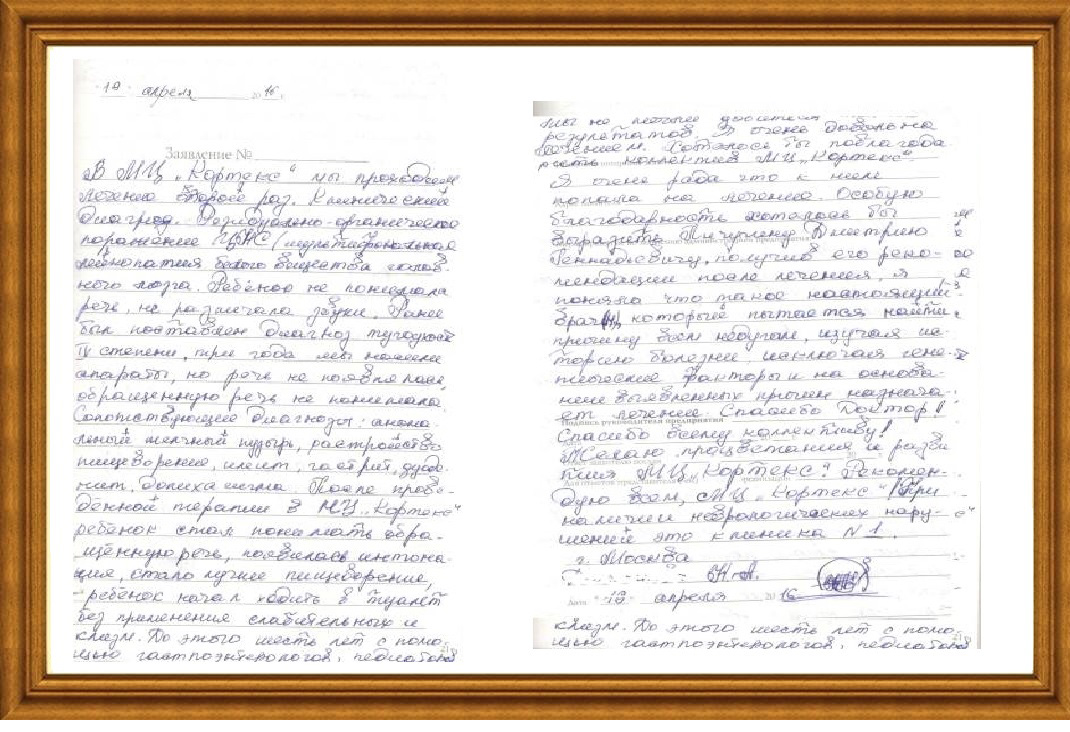 "18" апреля 2016 г.
Заявление №
В МЦ „Кортекс" мы проходим
лечение второй раз. Клинический
диагноз. Резидуально-органическое
поражение ЦНС (мультифокальная
лейкопатия белого вещества голов-
ного мозга. Ребёнок не понимала
речь, не различала звуки. Ранее
был поставлен диагноз тугоухость
IV степени, три года мы носили
апараты, но речь не появилась
обращенную речь не понимала.
Сопотствующие диагнозы: анома-
льный желчный пузырь, растройство
пищеварения, илеит, гастрит, дуоде-
нит, долихасигма. После прове-
дённой терапии в МЦ „Кортекс"
ребёнок стал понимать обра-
щённую речь, появилась интона-
ция, стало лучше пищеворение,
ребёнок начал ходить в туалет
без применения слабительных и
клизм. До этого шесть лет с помо-
щью гастроэнтерологов, педиаторов
мы не могли добиться
результатов. Я очень довольна
лечением. Хотелось бы поблагода-
рить коллектив МЦ „Кортекс"
Я очень рада что к ним
попала на лечение. Особую
благодарность хотелось бы
выразить Пичугину Дмитрию
Геннадьевичу, получив его реко-
мендации после лечения, я
поняла что такое настоящий
врач, который пытается найти
причину всем недугам, изучая ис-
торию болезни, исключая гене-
тические факторы и на основа-
нии выявленных причин назнача-
ет лечение. Спасибо Доктор!
Подпись руководителя предприятия
Спасибо всему коллективу!
Желаю процветания и разви-
тия МЦ „Кортекс"! Рекомен-
дую всем, МЦ „Кортекс" При
наличии неврологических нару-
шений это клиника N 1.
г. Москва
Н.А.
Дата "18" апреля 2016
клизм. До этого шесть лет с помо-
щью гастроэнтерологов, педиаторов